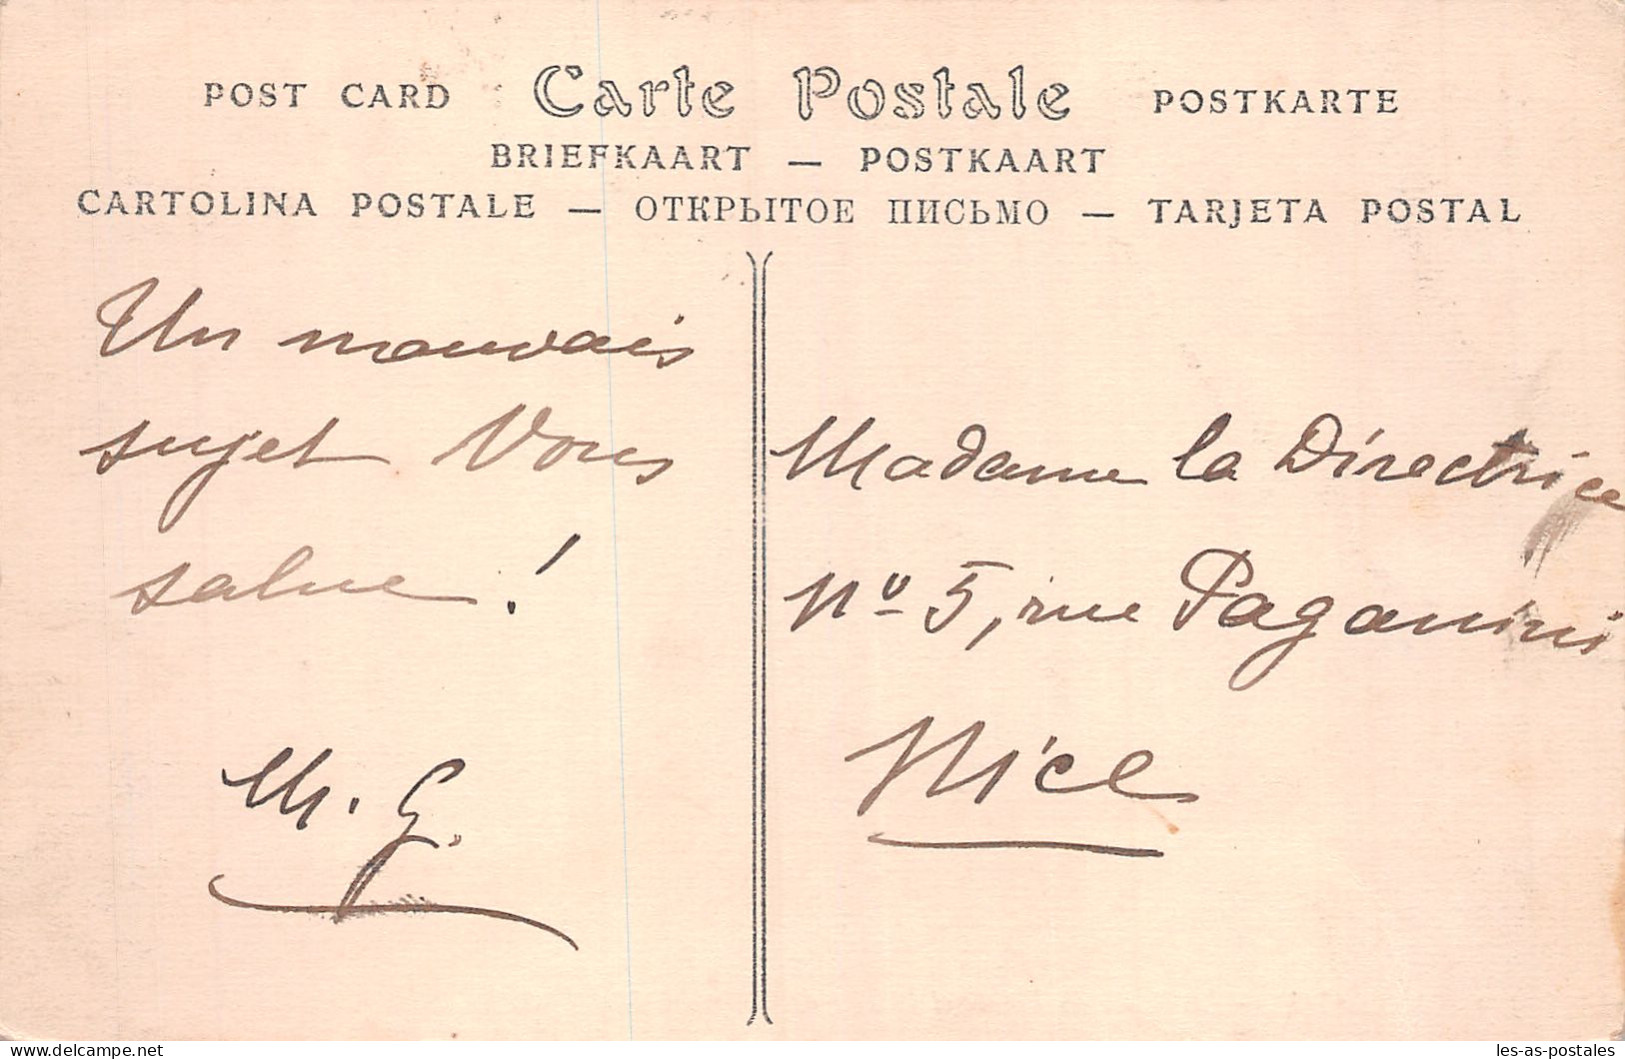 POST CARD Carte Postale POSTKARTE
BRIEFKAART — POSTKAART
CARTOLINA POSTALE — ОТКРЫТОЕ ПИСЬМО — TARJETA POSTAL
Un mauvais
sujet Vous
salue !
M. G.
Madame la Directrice
No 5, rue Paganini
Nice
delcampe.net
les-as-postales